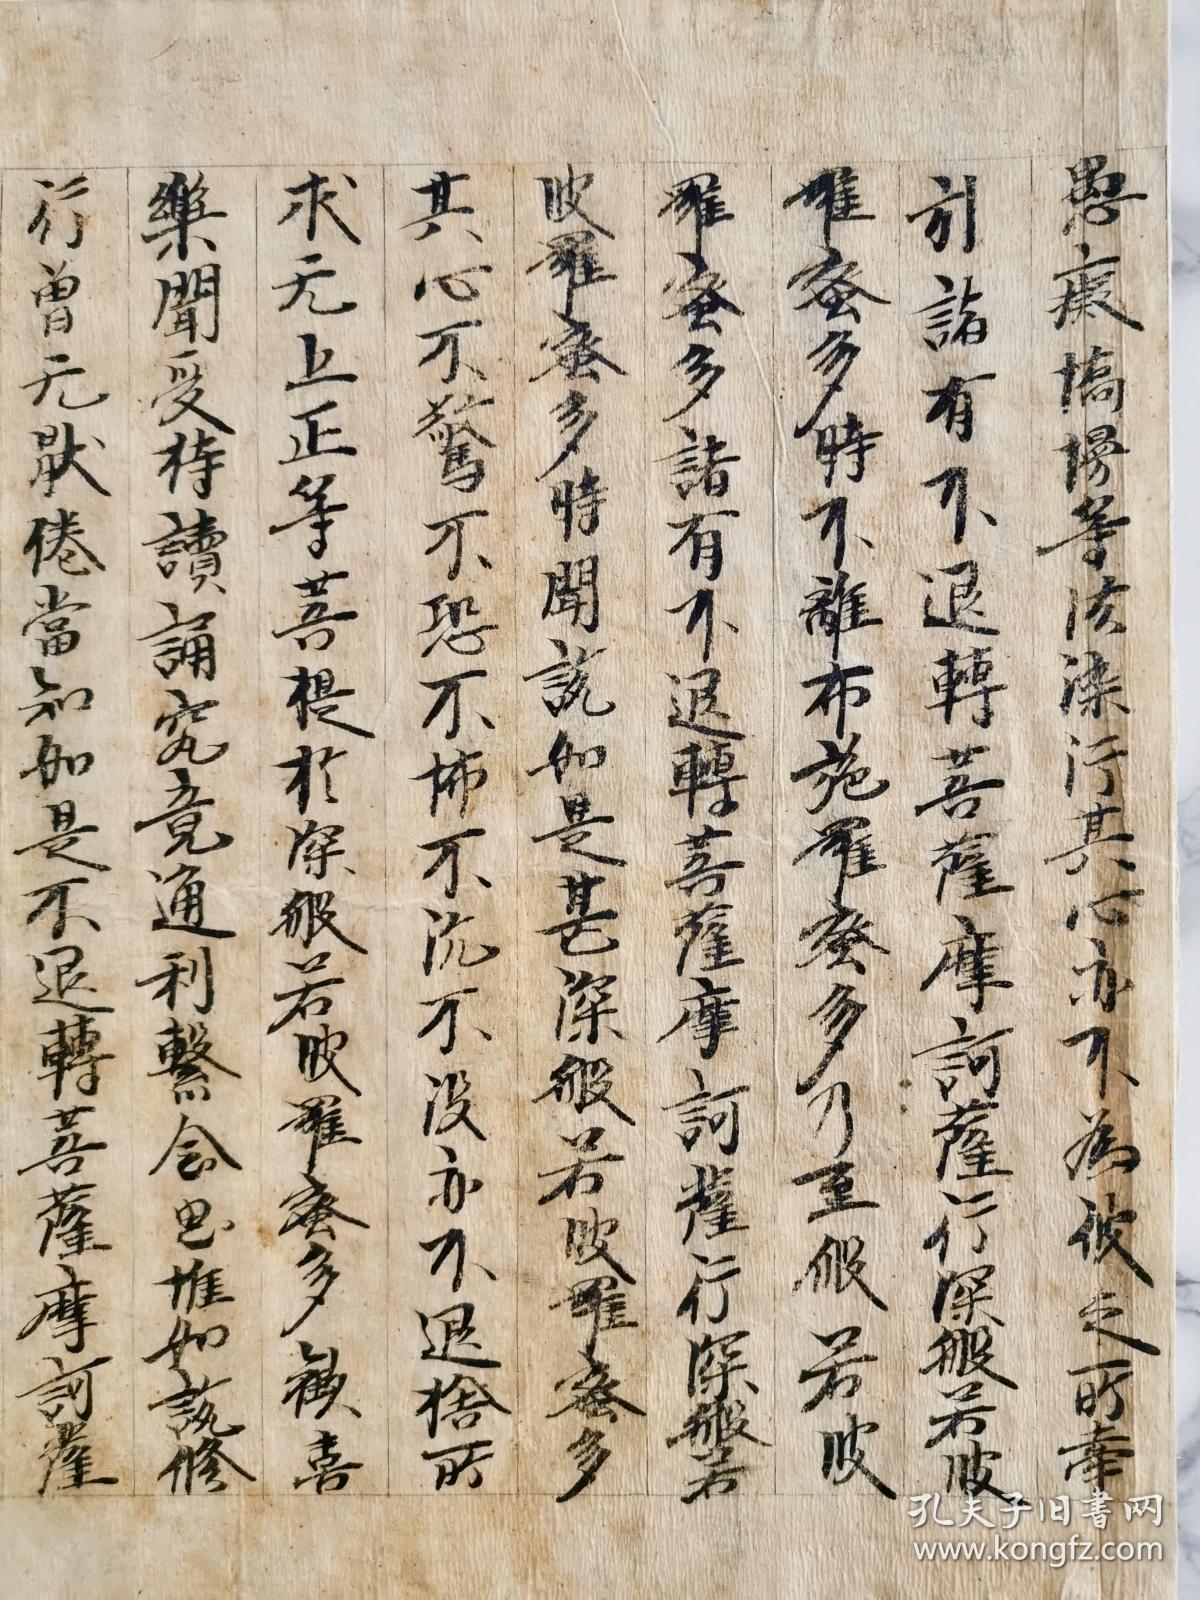 愚癡憍慢等法染汙其心亦不為彼之所牽
引諸有不退轉菩薩摩訶薩行深般若波
羅蜜多時不離布施羅蜜多乃至般若波
羅蜜多諸有不退轉菩薩摩訶薩行深般若
波羅蜜多時聞説如是甚深般若波羅蜜多
其心不驚不恐不怖不沉不没亦不退捨所
求无上正等菩提於深般若波羅蜜多歡喜
樂聞受持讀誦究竟通利繫念思惟如説修
行曾无猒倦當知如是不退轉菩薩摩訶薩
孔夫子旧书网
www.kongfz.com